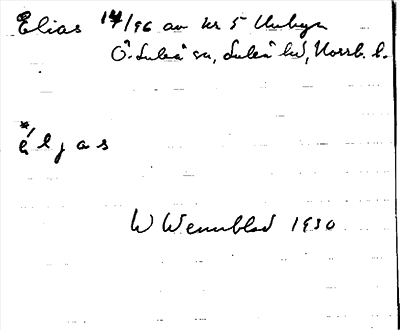 Elias 14/96 av kr 5 Unbyn
Ö. Luleå sn, Luleå hd, Norrb. l.
*é l j a s
W Wennblad 1930